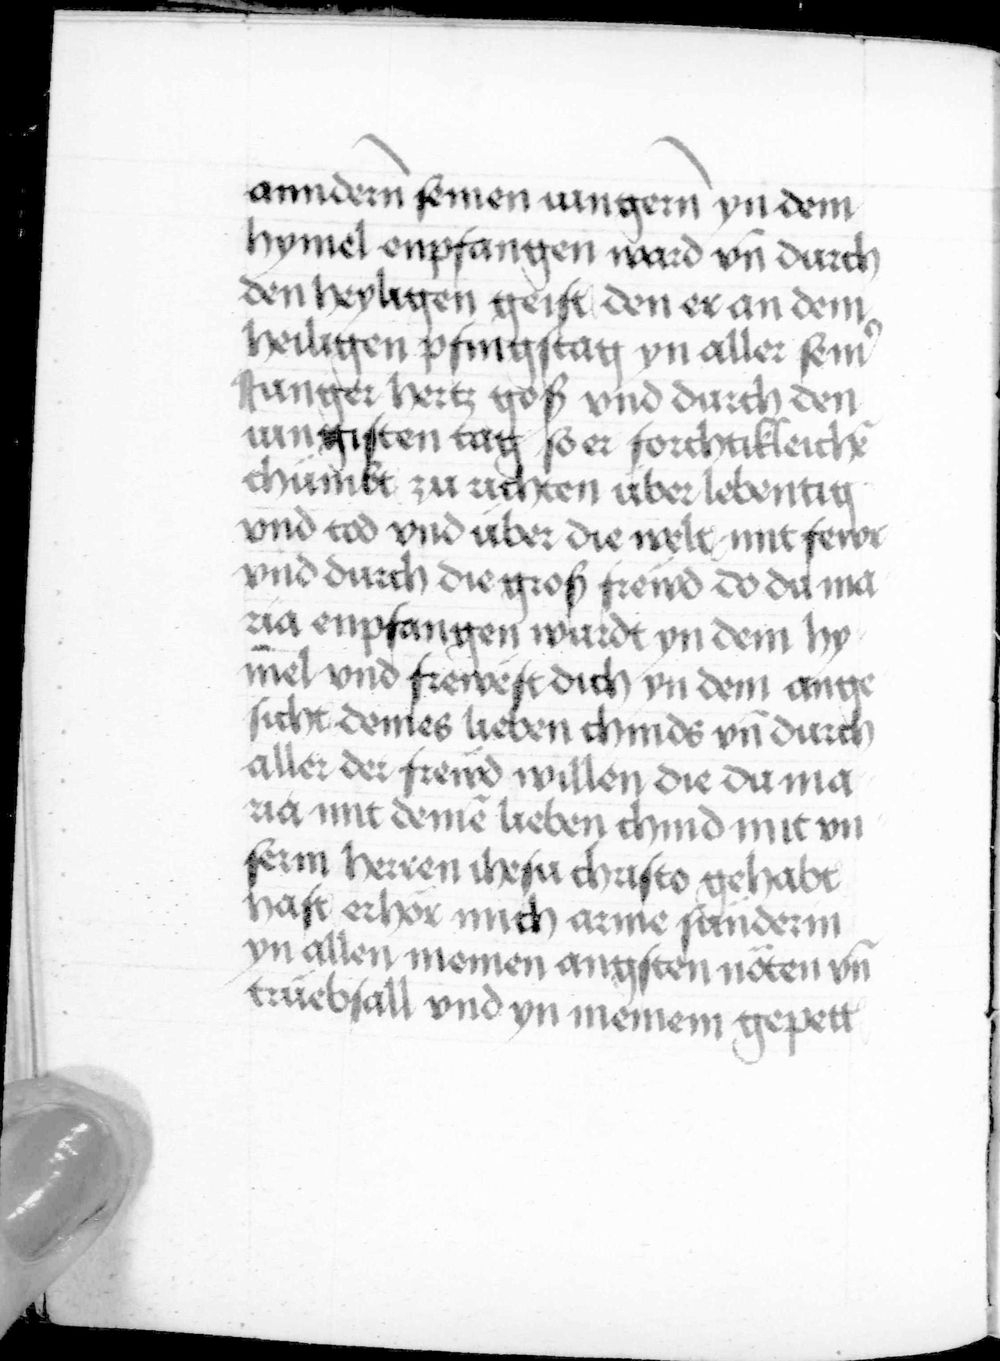 anndern̄ seinen iungern̄ yn dem
hymel enpfangen ward vn̄ durch
den heyligen geist den er an dem
heiligen pfingstag yn aller sein᷒
Iunger hertz goß vnd durch den
iungisten tag so er forchtikleichē
chümbt zu richten über lebentig
vnd tod vnd über die welt mit fewr
vnd durch die groß freẅd do du ma
ria enpfangen wurdt yn dem hy
m̄el vnd freẅest dich yn dem ange
sicht deines lieben chinds vn̄ durch
aller der freẅd willen die du ma
ria mit deinē lieben chind mit vn
serm herren ihesu christo gehabt
hast erhör mich arme sünderin
yn allen meinen angsten nöten vn̄
trüebsall vnd yn meinem gepett